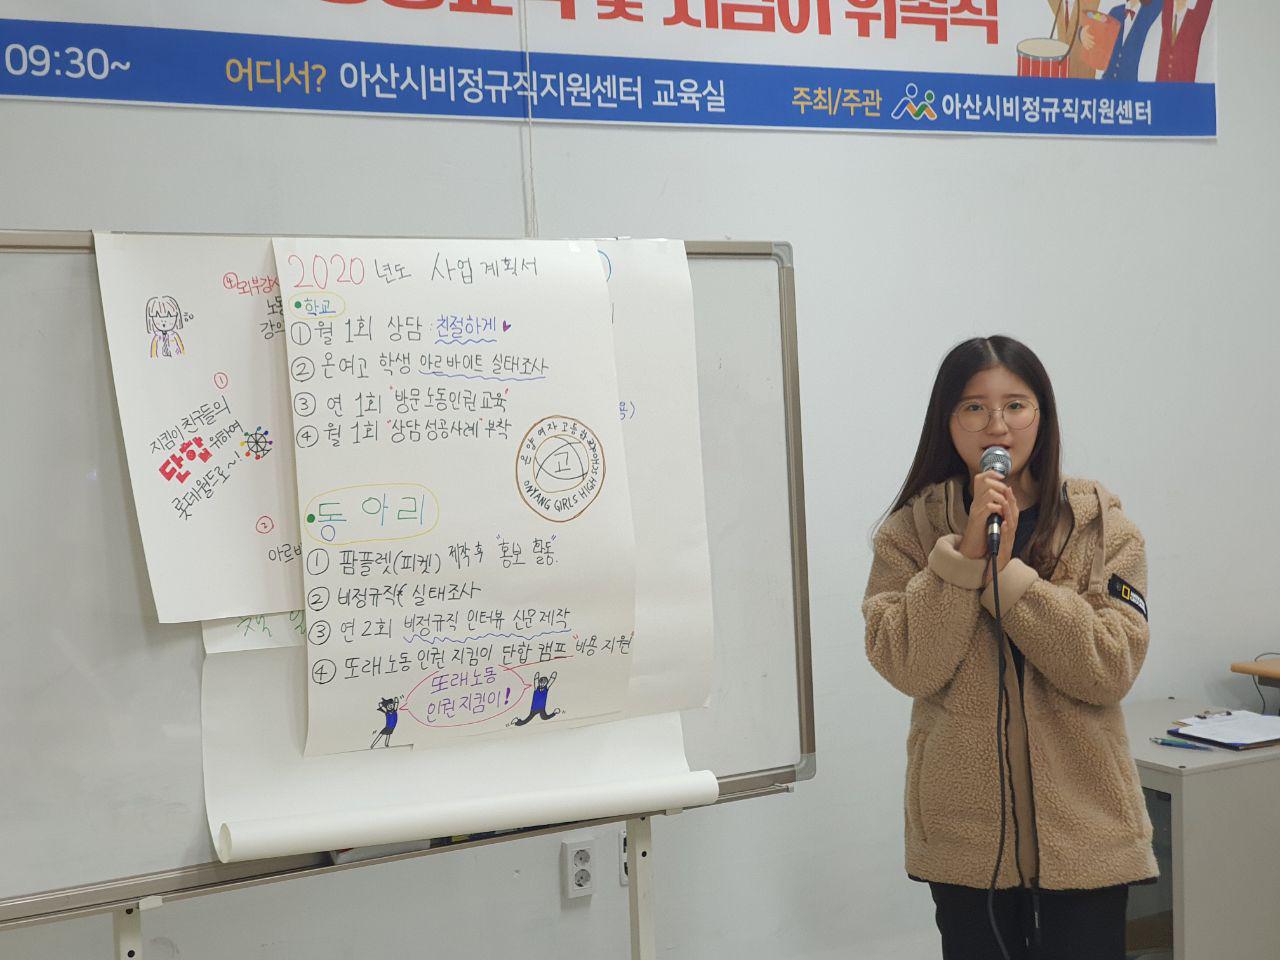 및 지킴이 위촉식
09:30~ 어디서? 아산시비정규직지원센터 교육실 주최/주관 아산시비정규직지원센터
2020 년도 사업계획서
학교
① 월 1회 상담 : 친절하게
② 온여고 학생 아르바이트 실태조사
③ 연 1회 "방문노동인권교육"
④ 월 1회 "상담성공사례" 부착
온양여자고등학교
고
ONYANG GIRLS HIGH SCHOOL
동아리
① 팜플렛(피켓) 제작 후 "홍보 활동".
② 비정규직 실태조사
③ 연 2회 비정규직 인터뷰 신문제작
④ 또래노동인권지킴이 단합 캠프 "비용 지원"
또래노동
인권지킴이!
④ 외부강
노동
강의
①
지킴이 친구들의
단합 위하여
롯데월드로~!
②
아르바